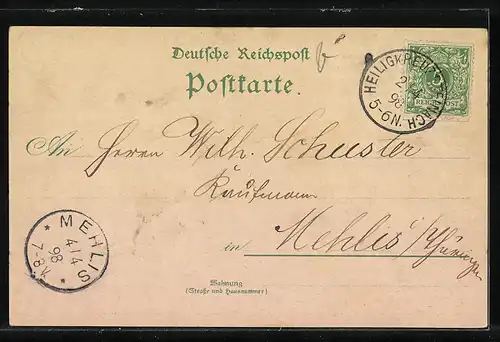 Deutsche Reichspost
Postkarte.
HEILIGKREUZSTEINACH
98
5-6N.
REICHSPOST
An Herrn Wilh. Schuster
Kaufmann
in Mehlis i/Thüringen
MEHLIS
4/4
98
7-8
Wohnung
(Straße und Hausnummer)